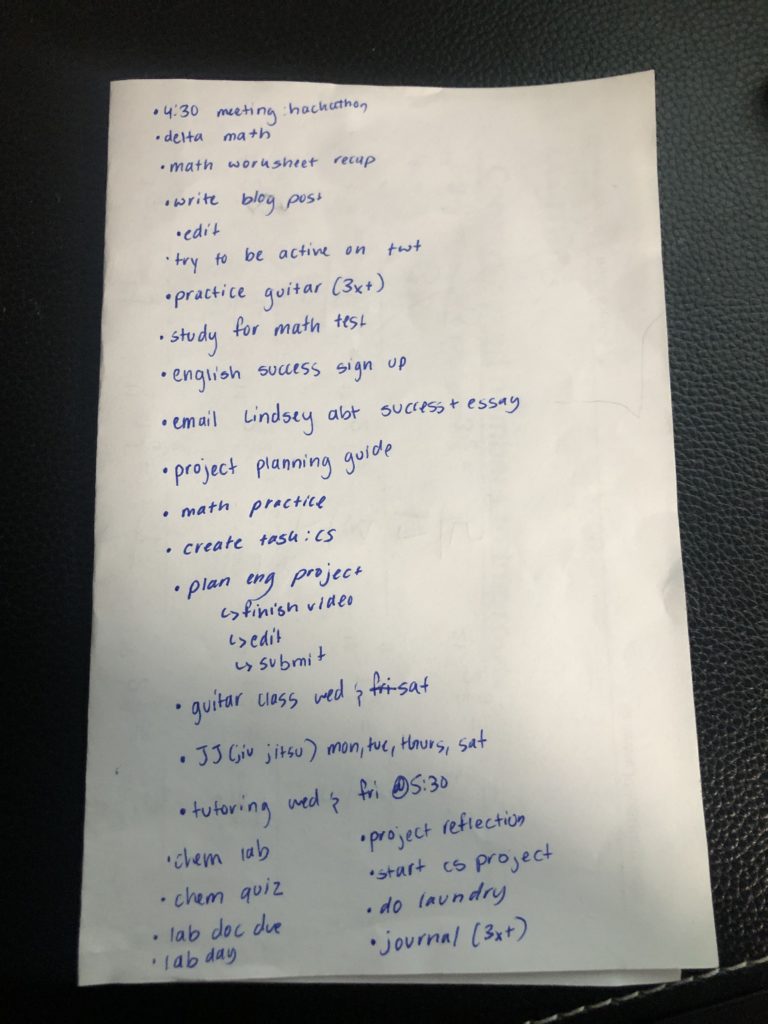 • 4:30 meeting: hackathon
• delta math
• math worksheet recap
• write blog post
• edit
• try to be active on twt
• practice guitar (3x+)
• study for math test
• english success sign up
• email Lindsey abt success + essay
• project planning guide
• math practice
• create task: cs
• plan eng project
↳ finish video
↳ edit
↳ submit
• guitar class wed & fri sat
• JJ (jiu jitsu) mon, tue, thurs, sat
• tutoring wed & fri @5:30
• chem lab
• chem quiz
• lab doc due
• lab day
• project reflection
• start cs project
• do laundry
• journal (3x+)